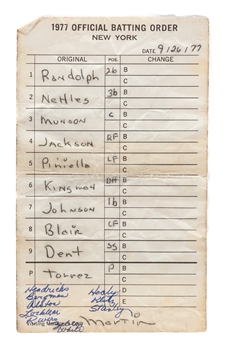 1977 OFFICIAL BATTING ORDER
NEW YORK
DATE 9/26/77
ORIGINAL POS. CHANGE
1 Randolph 2b B
C
2 Nettles 3b B
C
3 Munson C B
C
4 Jackson RF B
C
5 Piniella LF B
C
6 Kingman DH B
C
7 Johnson 1b B
C
8 Blair CF B
C
9 Dent SS B
C
P Torrez P B
C
Hendricks Healy D
Bergman Klutts E
Alston Stanley
Zeber
Rivers
White Martin